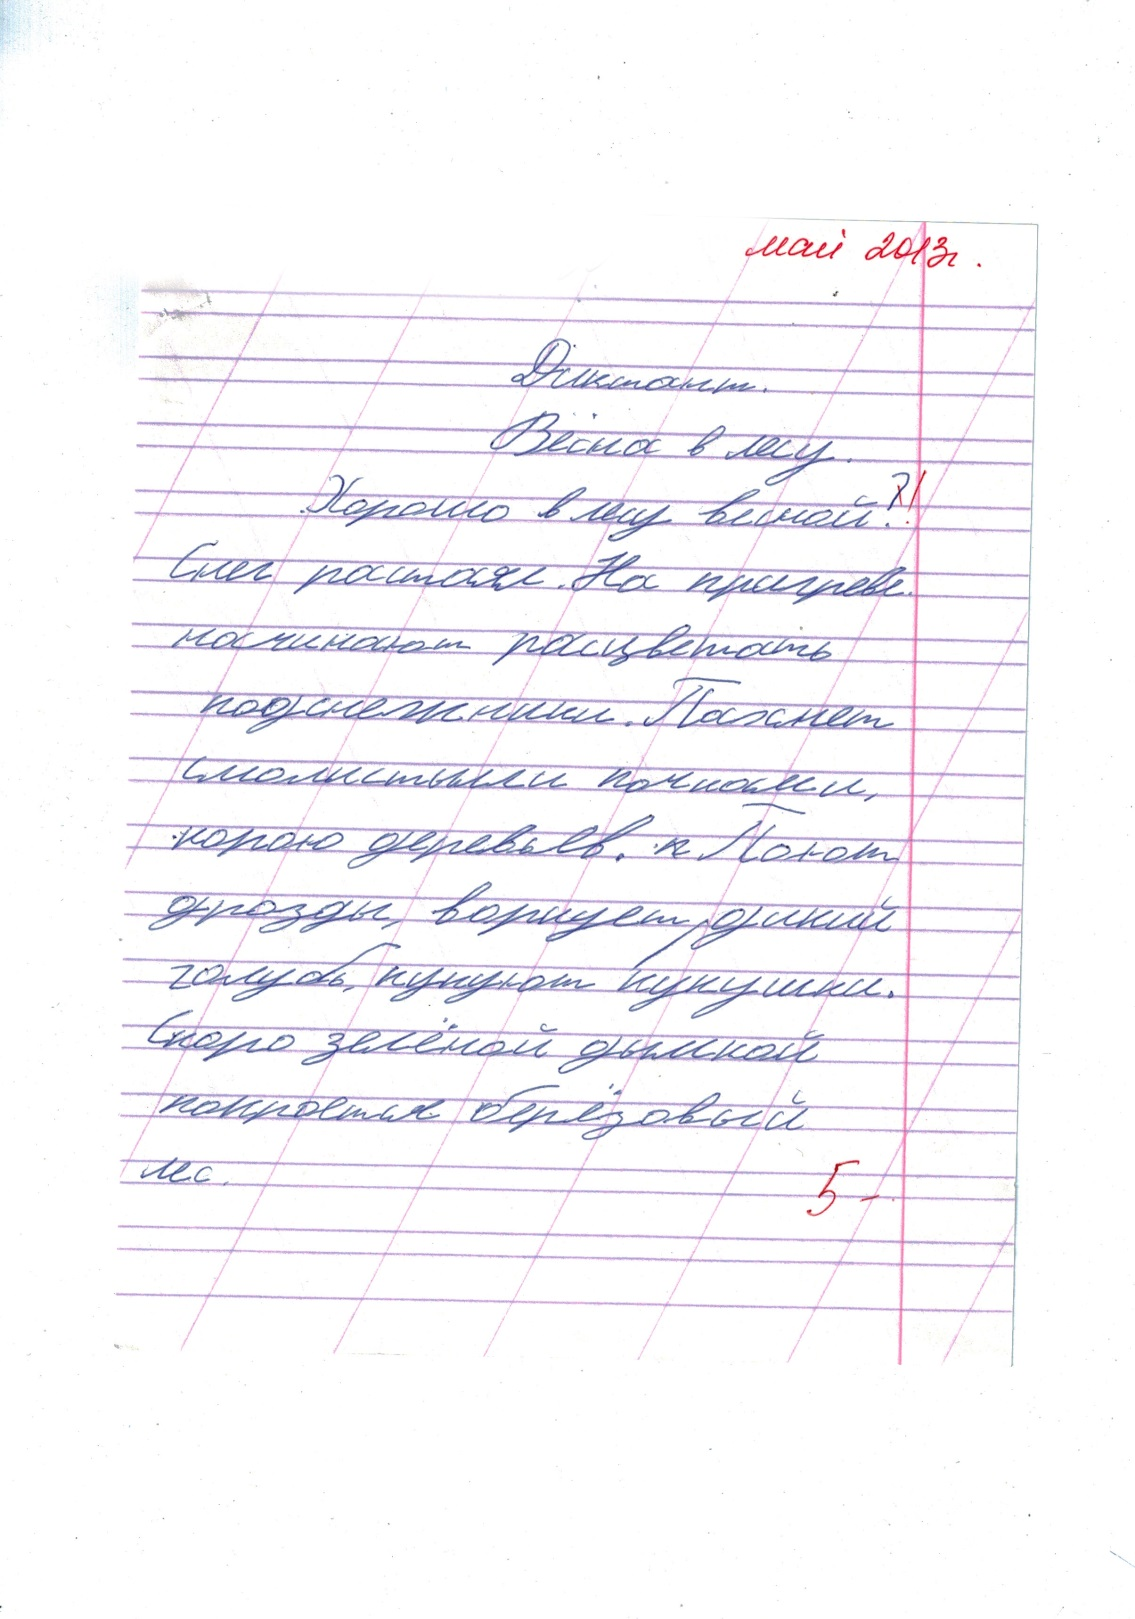 май 2013г.
Диктант.
Весна в лесу.
Хорошо в лесу весной?!
Снег растаял. На пригреве
начинают расцветать
подснежники. Пахнет
смолистыми почками,
корою деревьев. к Поют
дрозды, воркует дикий
голубь, кукуют кукушки.
Скоро зелёной дымкой
покроется берёзовый
лес.
5-